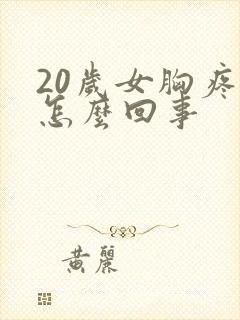 20歲女胸疼
怎麼回事
黃麗